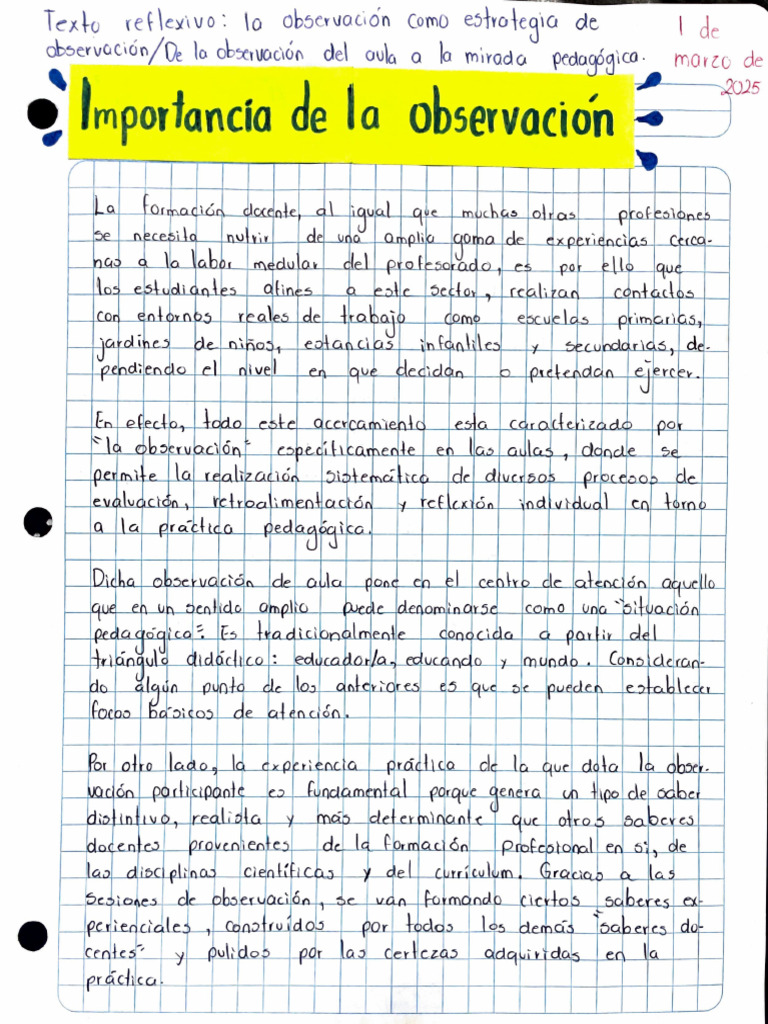 Texto reflexivo: la observación como estrategia de
observación/De la observación del aula a la mirada pedagógica.
1 de
marzo de
2025
Importancia de la observación
La formación docente, al igual que muchas otras profesiones
se necesita nutrir de una amplia gama de experiencias cerca-
nas a la labor medular del profesorado, es por ello que
los estudiantes afines a este sector, realizan contactos
con entornos reales de trabajo como escuelas primarias,
jardines de niños, estancias infantiles y secundarias, de-
pendiendo el nivel en que decidan o pretendan ejercer.
En efecto, todo este acercamiento esta caracterizado por
"la observación" específicamente en las aulas, donde se
permite la realización sistemática de diversos procesos de
evaluación, retroalimentación y reflexión individual en torno
a la práctica pedagógica.
Dicha observación de aula pone en el centro de atención aquello
que en un sentido amplio puede denominarse como una "situación
pedagógica". Es tradicionalmente conocida a partir del
triángulo didáctico: educador/a, educando y mundo. Consideran-
do algún punto de los anteriores es que se pueden establecer
focos básicos de atención.
Por otro lado, la experiencia práctica de la que dota la obser-
vación participante es fundamental porque genera un tipo de saber
distintivo, realista y más determinante que otros saberes
docentes provenientes de la formación profesional en si, de
las disciplinas científicas y del currículum. Gracias a las
sesiones de observación, se van formando ciertos saberes ex-
perienciales, construídos por todos los demás "saberes do-
centes" y pulidos por las certezas adquiridas en la
práctica.